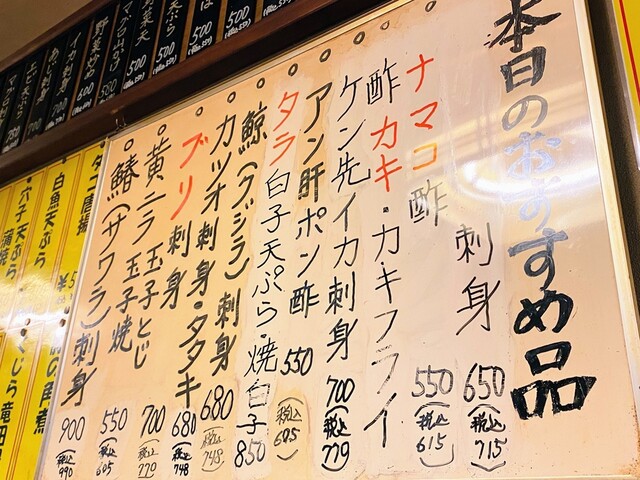 本日のおすすめ品
刺身 650(税込715)
ナマコ酢 550(税込615)
酢カキ・カキフライ
ケン先イカ刺身 700(税込770)
アン肝ポン酢 550(税込605)
タラ白子天ぷら・焼白子 850
鯨(クジラ)刺身 680(税込748)
カツオ刺身・タタキ 680(税込748)
ブリ刺身
黄ニラ玉子とじ 700(税込770)
玉子焼 550(税込605)
鰆(サワラ)刺身 900(税込990)
タコ唐揚
白魚天ぷら
穴子天ぷら
蒲焼
の角煮
くじら竜田
天ぷら 500
野菜炒め 600
イカ刺身